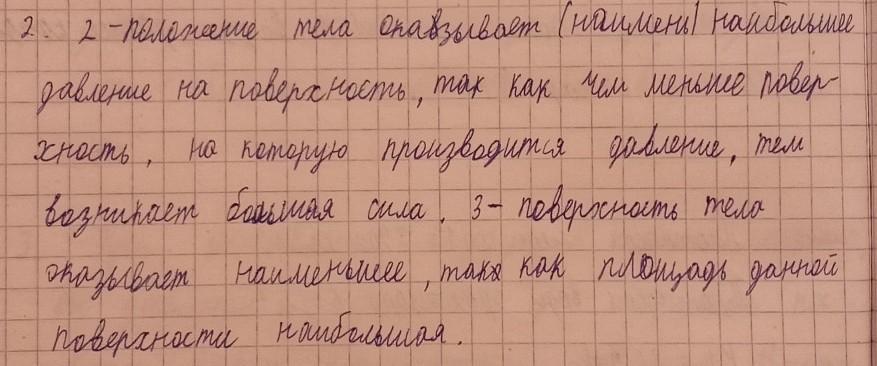 2. 2-положение тела оказывает (наимень) наибольшее
давление на поверхность, так как чем меньше повер-
хность, на которую производится давление, тем
возникает большая сила. 3- поверхность тела
оказывает наименьшее, так как площадь данной
поверхности наибольшая.